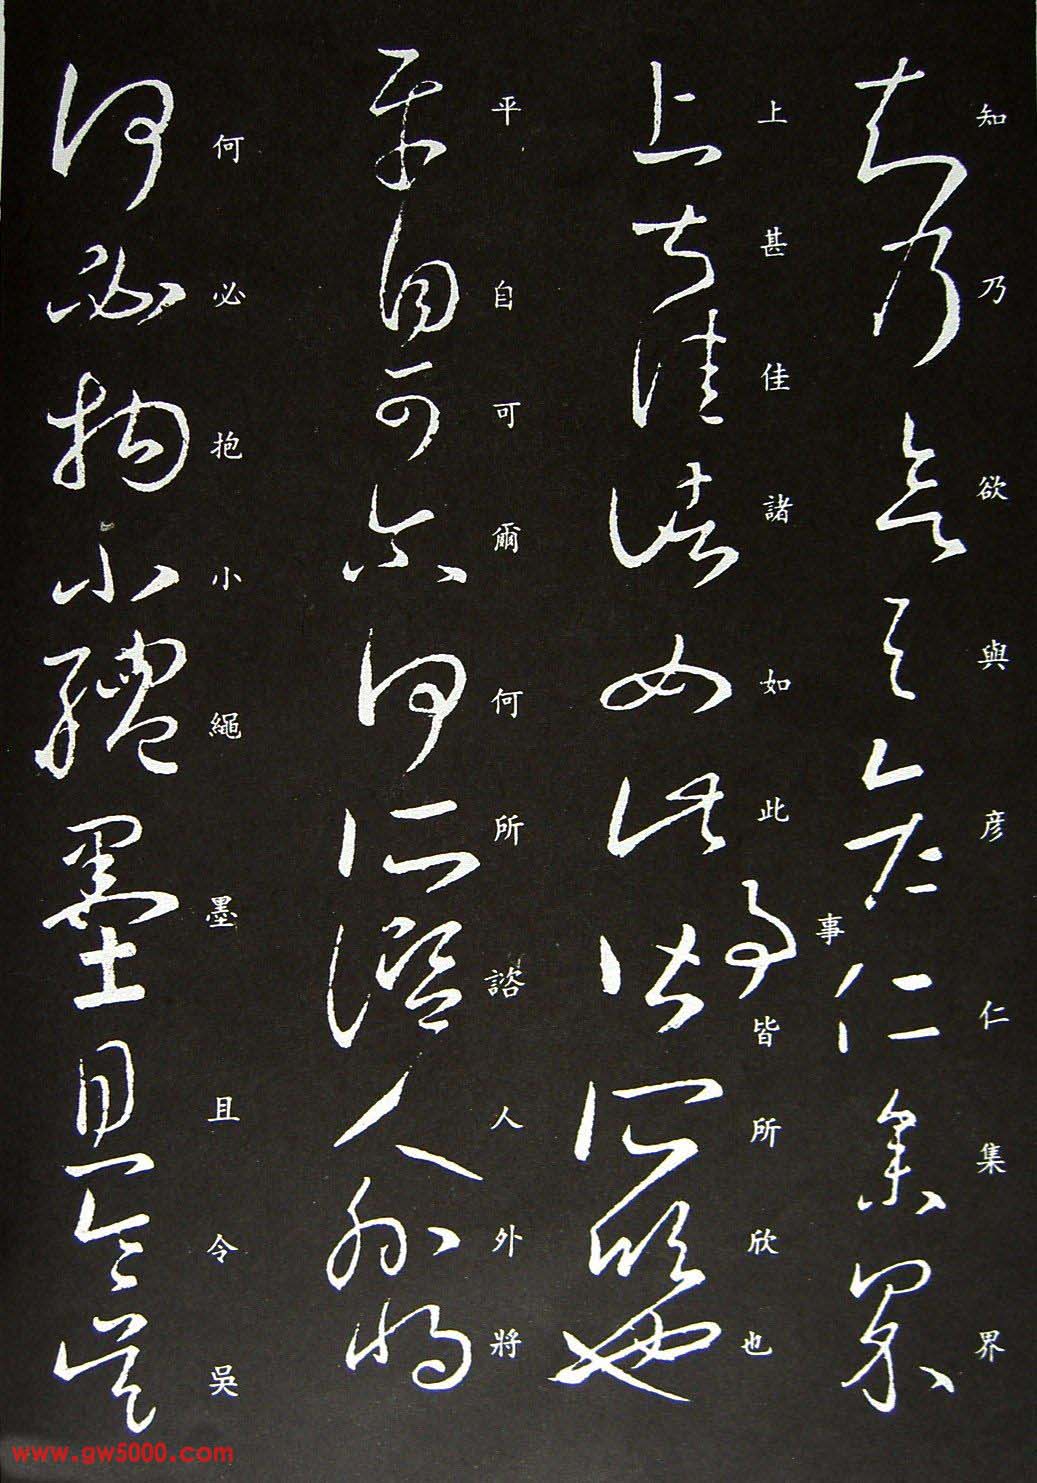 知乃欲與彦仁集界
上甚佳諸如此事皆所欣也
平自可爾何所諮人外將
何必抱小繩墨且令吳
www.gw5000.com